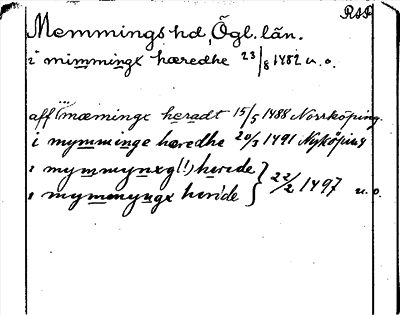 RAP
Memmings hd, Ögl. län.
i mimmingx hæredhe 23/8 1482 u. o.
aff mæminge heradt 15/5 1488 Norrköping.
i mymminge hæredhe 20/3 1491 Nyköping
i mymmynxg (!) herede } 22/2 1497 u. o.
i mymmyngx heride